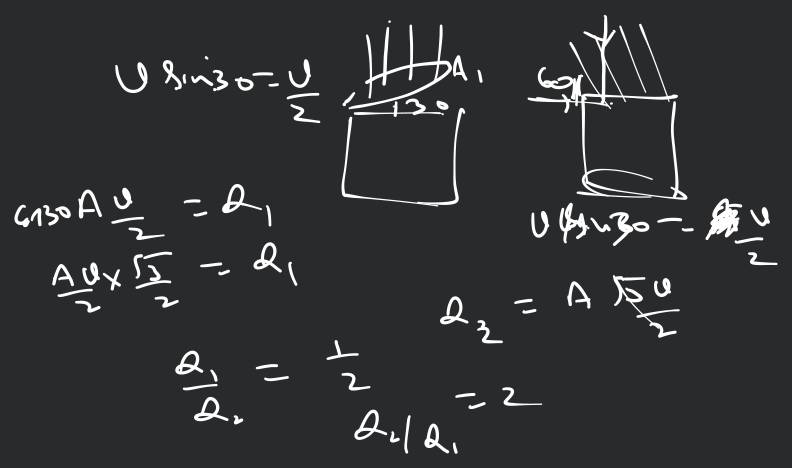 v sin30 = v/2
A1
30
60
cos30 A v/2 = Q1
Av/2 × √3/2 = Q1
v sin30 = v/2
Q2 = A √3 v/2
Q1/Q2 = 1/2
Q2/Q1 = 2